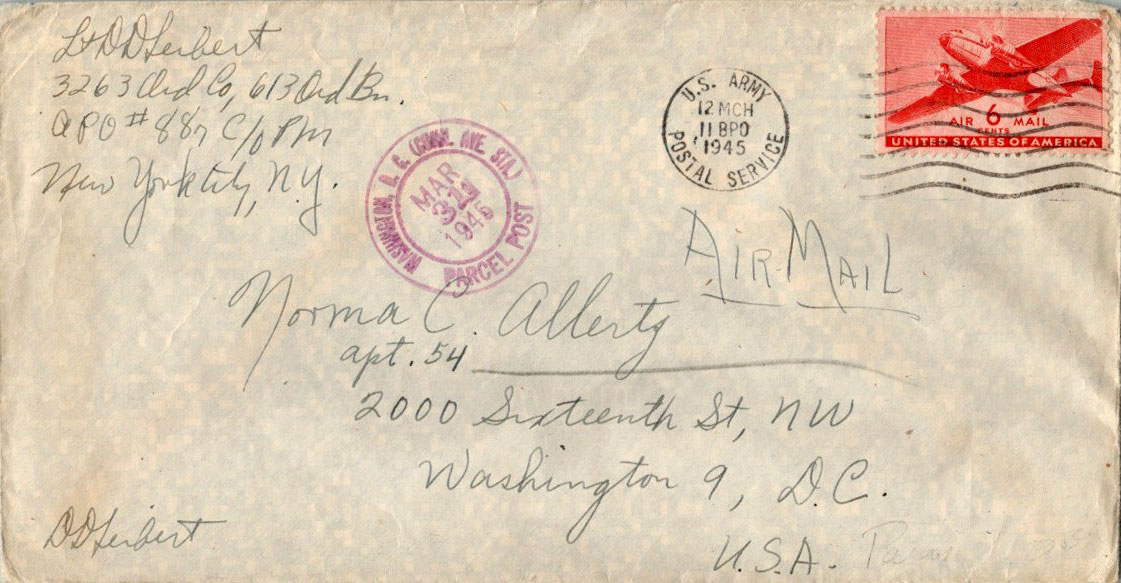 Lt D D Seibert
3263 Ord Co, 613 Ord Bn.
APO # 887 C/o PM
New York City, N.Y.
U.S. ARMY
12 MCH
11 BPO
1945
POSTAL SERVICE
AIR 6 MAIL
CENTS
UNITED STATES OF AMERICA
WASHINGTON, D. C. (CONN. AVE. STA.)
MAR
1945
PARCEL POST
AIR MAIL
Norma C. Allerty
apt. 54
2000 Sixteenth St, NW
Washington 9, D.C.
U.S.A.
D D Seibert